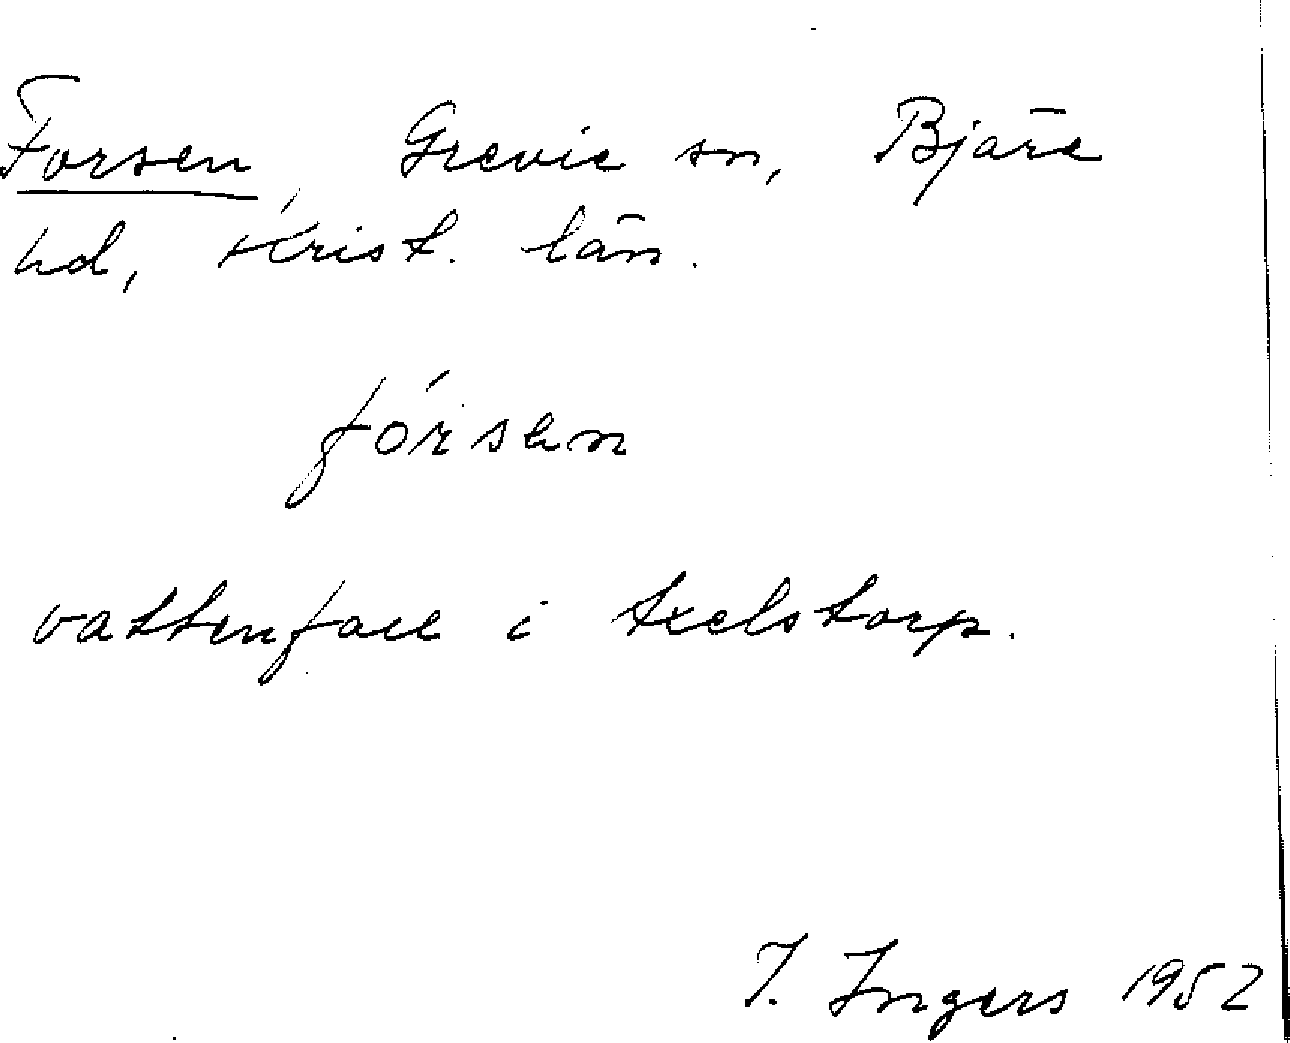 Forsen, Grevie sn, Bjäre
hd, Krist. län.
fórsen
vattenfall i Axelstorp.
I. Ingers 1952